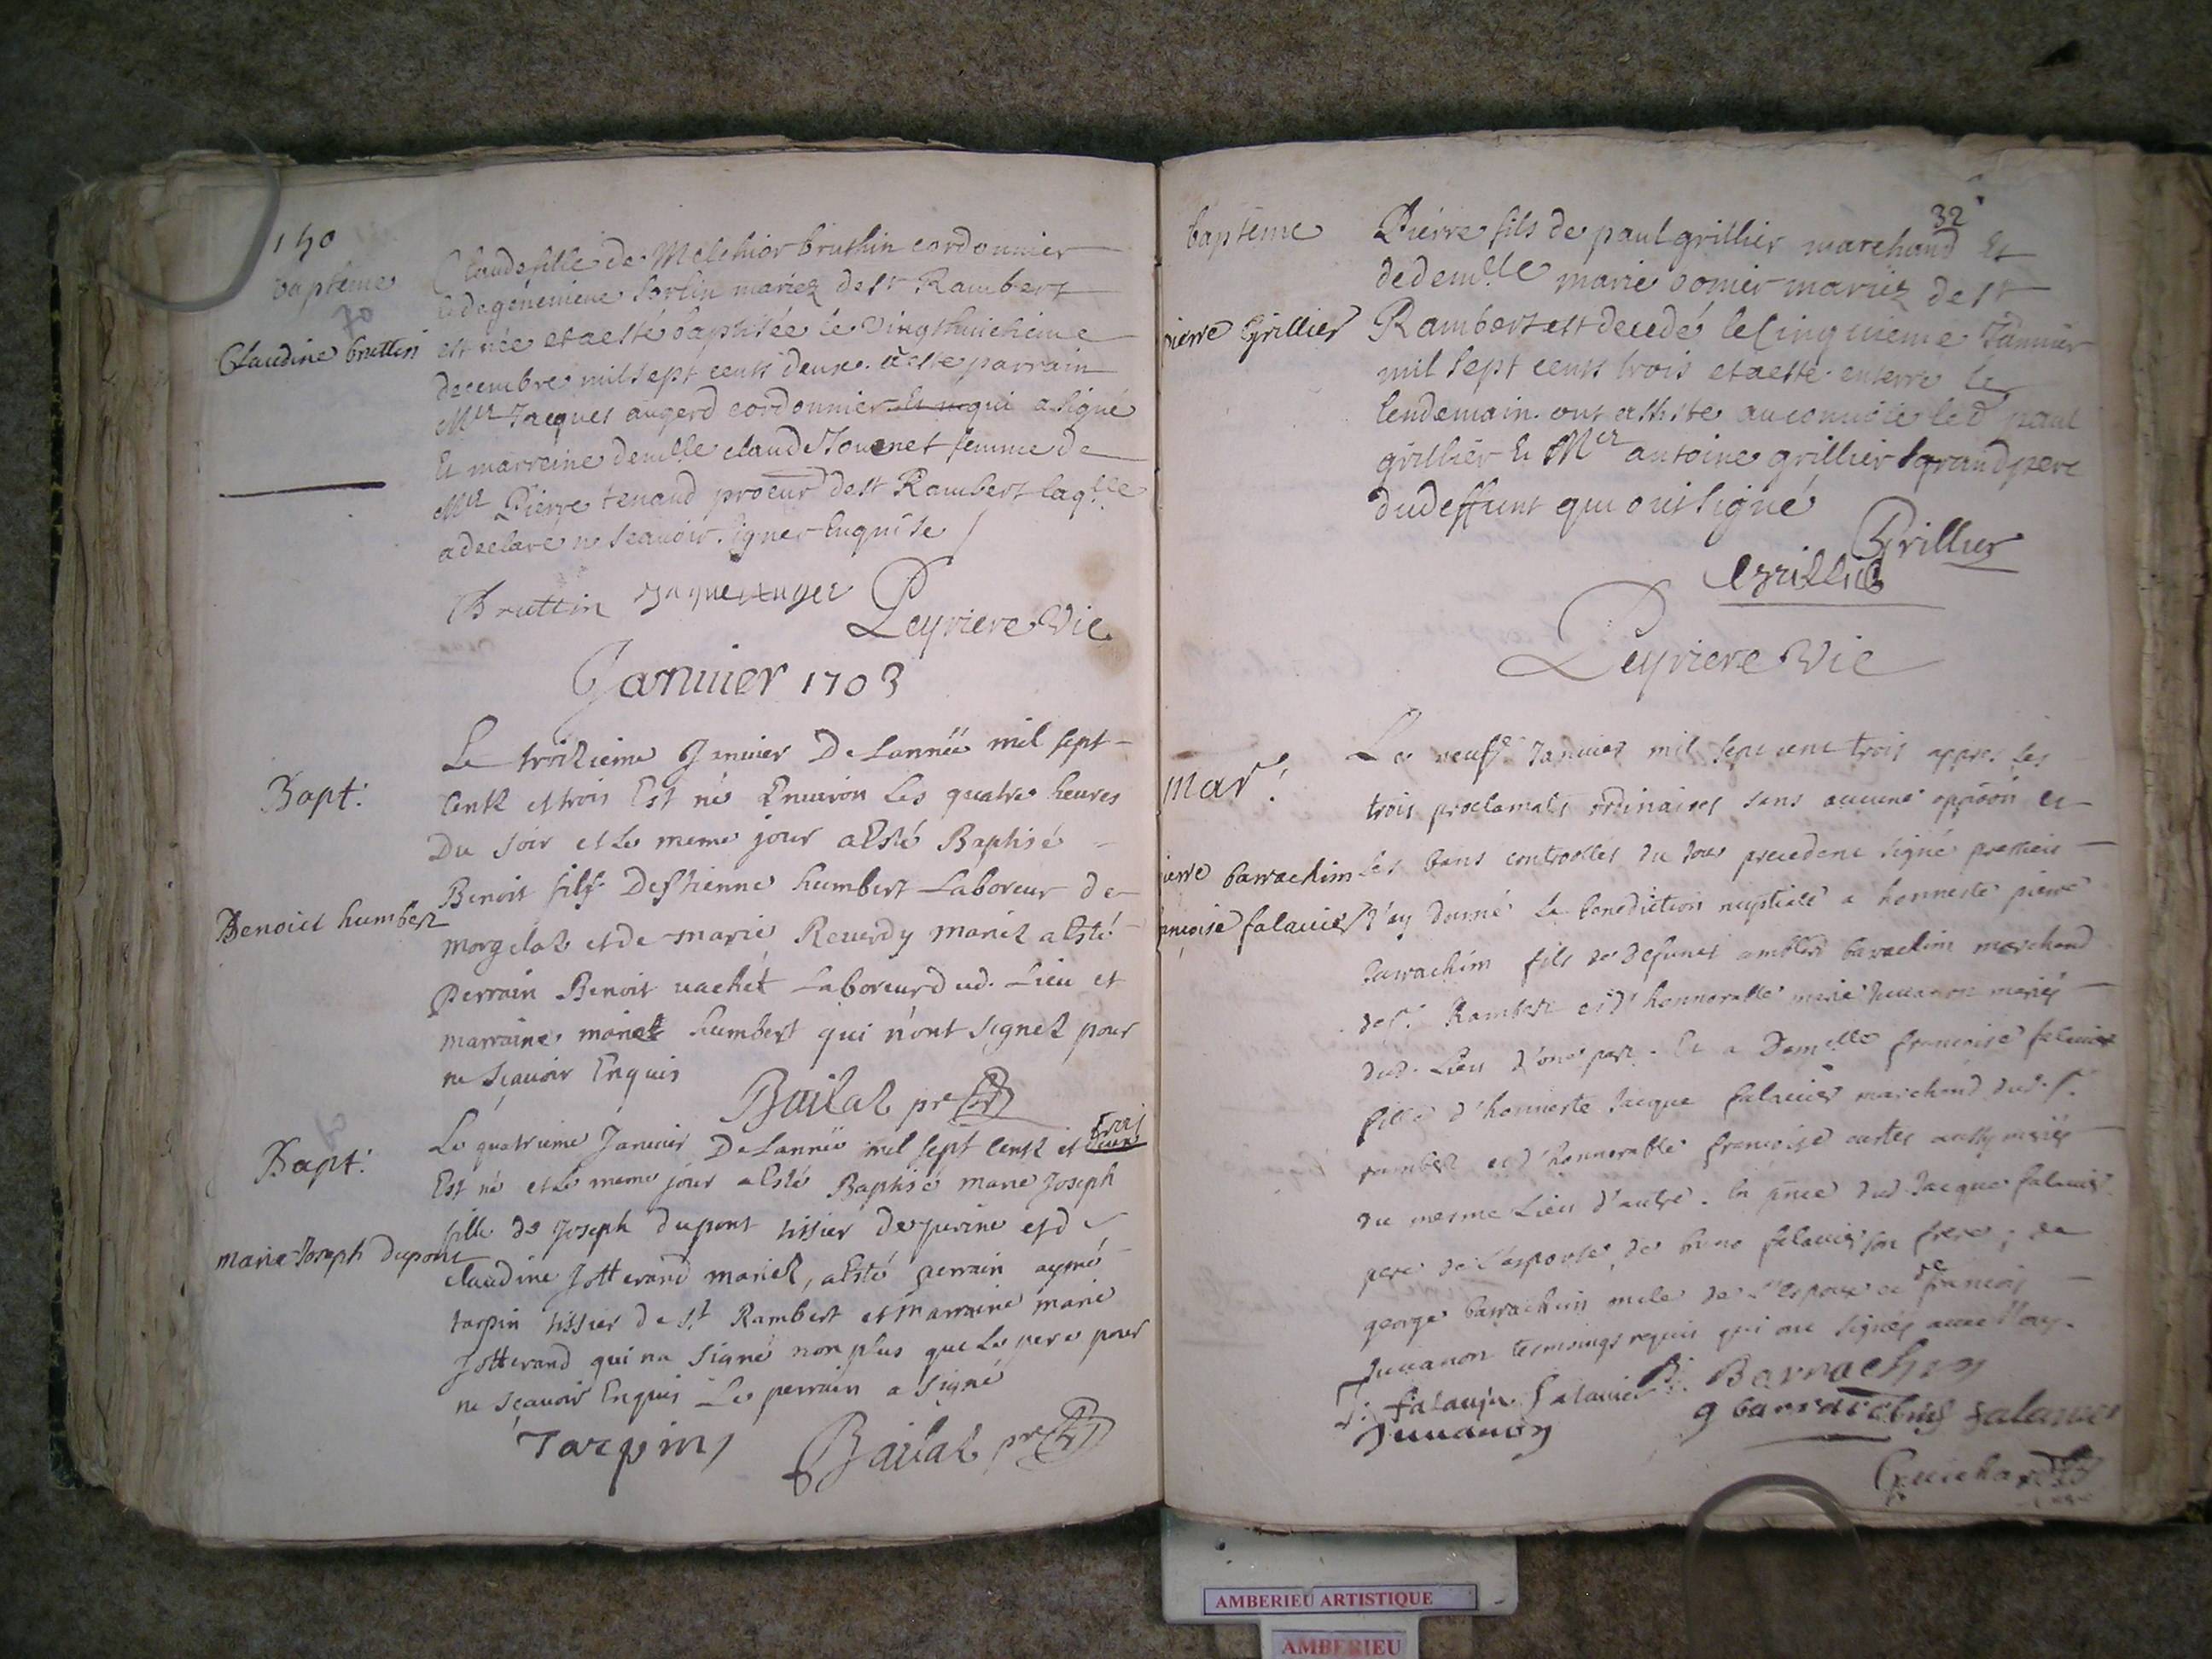 150
bapteme
70
Claudine bruttin
Claude fille de Melchior bruthin cordonnier
et de genevieve sorlin mariez de st Rambert
est née et a esté baptisée le vingt huictieme
decembre mil sept cents deux. a esté parrain
Mre Jacques augerd cordonnier qui a signé
Et marreine demlle claude Jouenet femme de
Mre Pierre tenand procur de st Rambert laqlle
a declaré ne scavoir signer Enquise /
Bruttin Jaque auger Peyriere Vic
Januier 1703
Bapt:
Benoict humbert
Le troizieme Januier De Lannéé mil sept
Centz et trois Est né Enuiron Les quatre heures
Du soir et Le meme jour a Esté Baptisé
Benoit fils Destienne humbert Laboreur de
morgelaz et de marie Reuerdy mariez a Esté
perrain Benoit uachét Laboreur dud. Lieu et
marraine marie humbert qui n'ont signez pour
ne Sçauoir Enquis
Builaz pre
Bapt:
marie Joseph dupont
Le quatrieme Januier De Lannéé mil sept Centz et trois
Est né et Le meme jour a Esté Baptisé marie Joseph
fille de Joseph dupont tissier de jurine et de
Claudine Jotterand mariez, a Esté perrain aymé
tarpin tissier de St Rambert et marraine marie
Jotterand qui na signé non plus que Le pere pour
ne Sçauoir Enquis Le perrain a signé
Tarpin Builaz pre
32
bapteme
pierre Grillier
Pierre fils de paul grillier marchand Et
de demlle marie somier mariez de st
Rambert est decedé le Cinquieme Januier
mil sept cents trois et a esté enterré le
lendemain. ont assiste au convoie led paul
grillier Et Mre antoine grillier grand pere
du deffunt qui ont signé
Grillier
Grillie
Peyriere Vic
Mar!
ierre barrachim
ancoise falauier
Le neufe Januier mil sept cent trois appres les
trois proclamats ordinaires sans aucune oppoōn et
les bans controolles du jour precedent signé
J'ay donné La benediction nuptiale a honneste pierre
barrachim fils de defunct barrachim marchand
de st. Rambert et d'honnorable marie Juuanon mariés
dud. Lieu d'une part. Et a Demlle francoise falauier
fille d'honneste Jacque falauier marchand dud. st.
rambert et d'honnorable francoise aussy mariés
du mesme Lieu d'autre. En pnce dud. Jacque falauier
pere de l'espouse, de falauier son frere, de
george barrachin de l'espoux et de francois
Juuanon tesmoings requis qui ont signés auec moy.
J. falauier falauier P. Barrachin
Juuanon g barrachin falauier
Guichard
AMBERIEU ARTISTIQUE
AMBERIEU